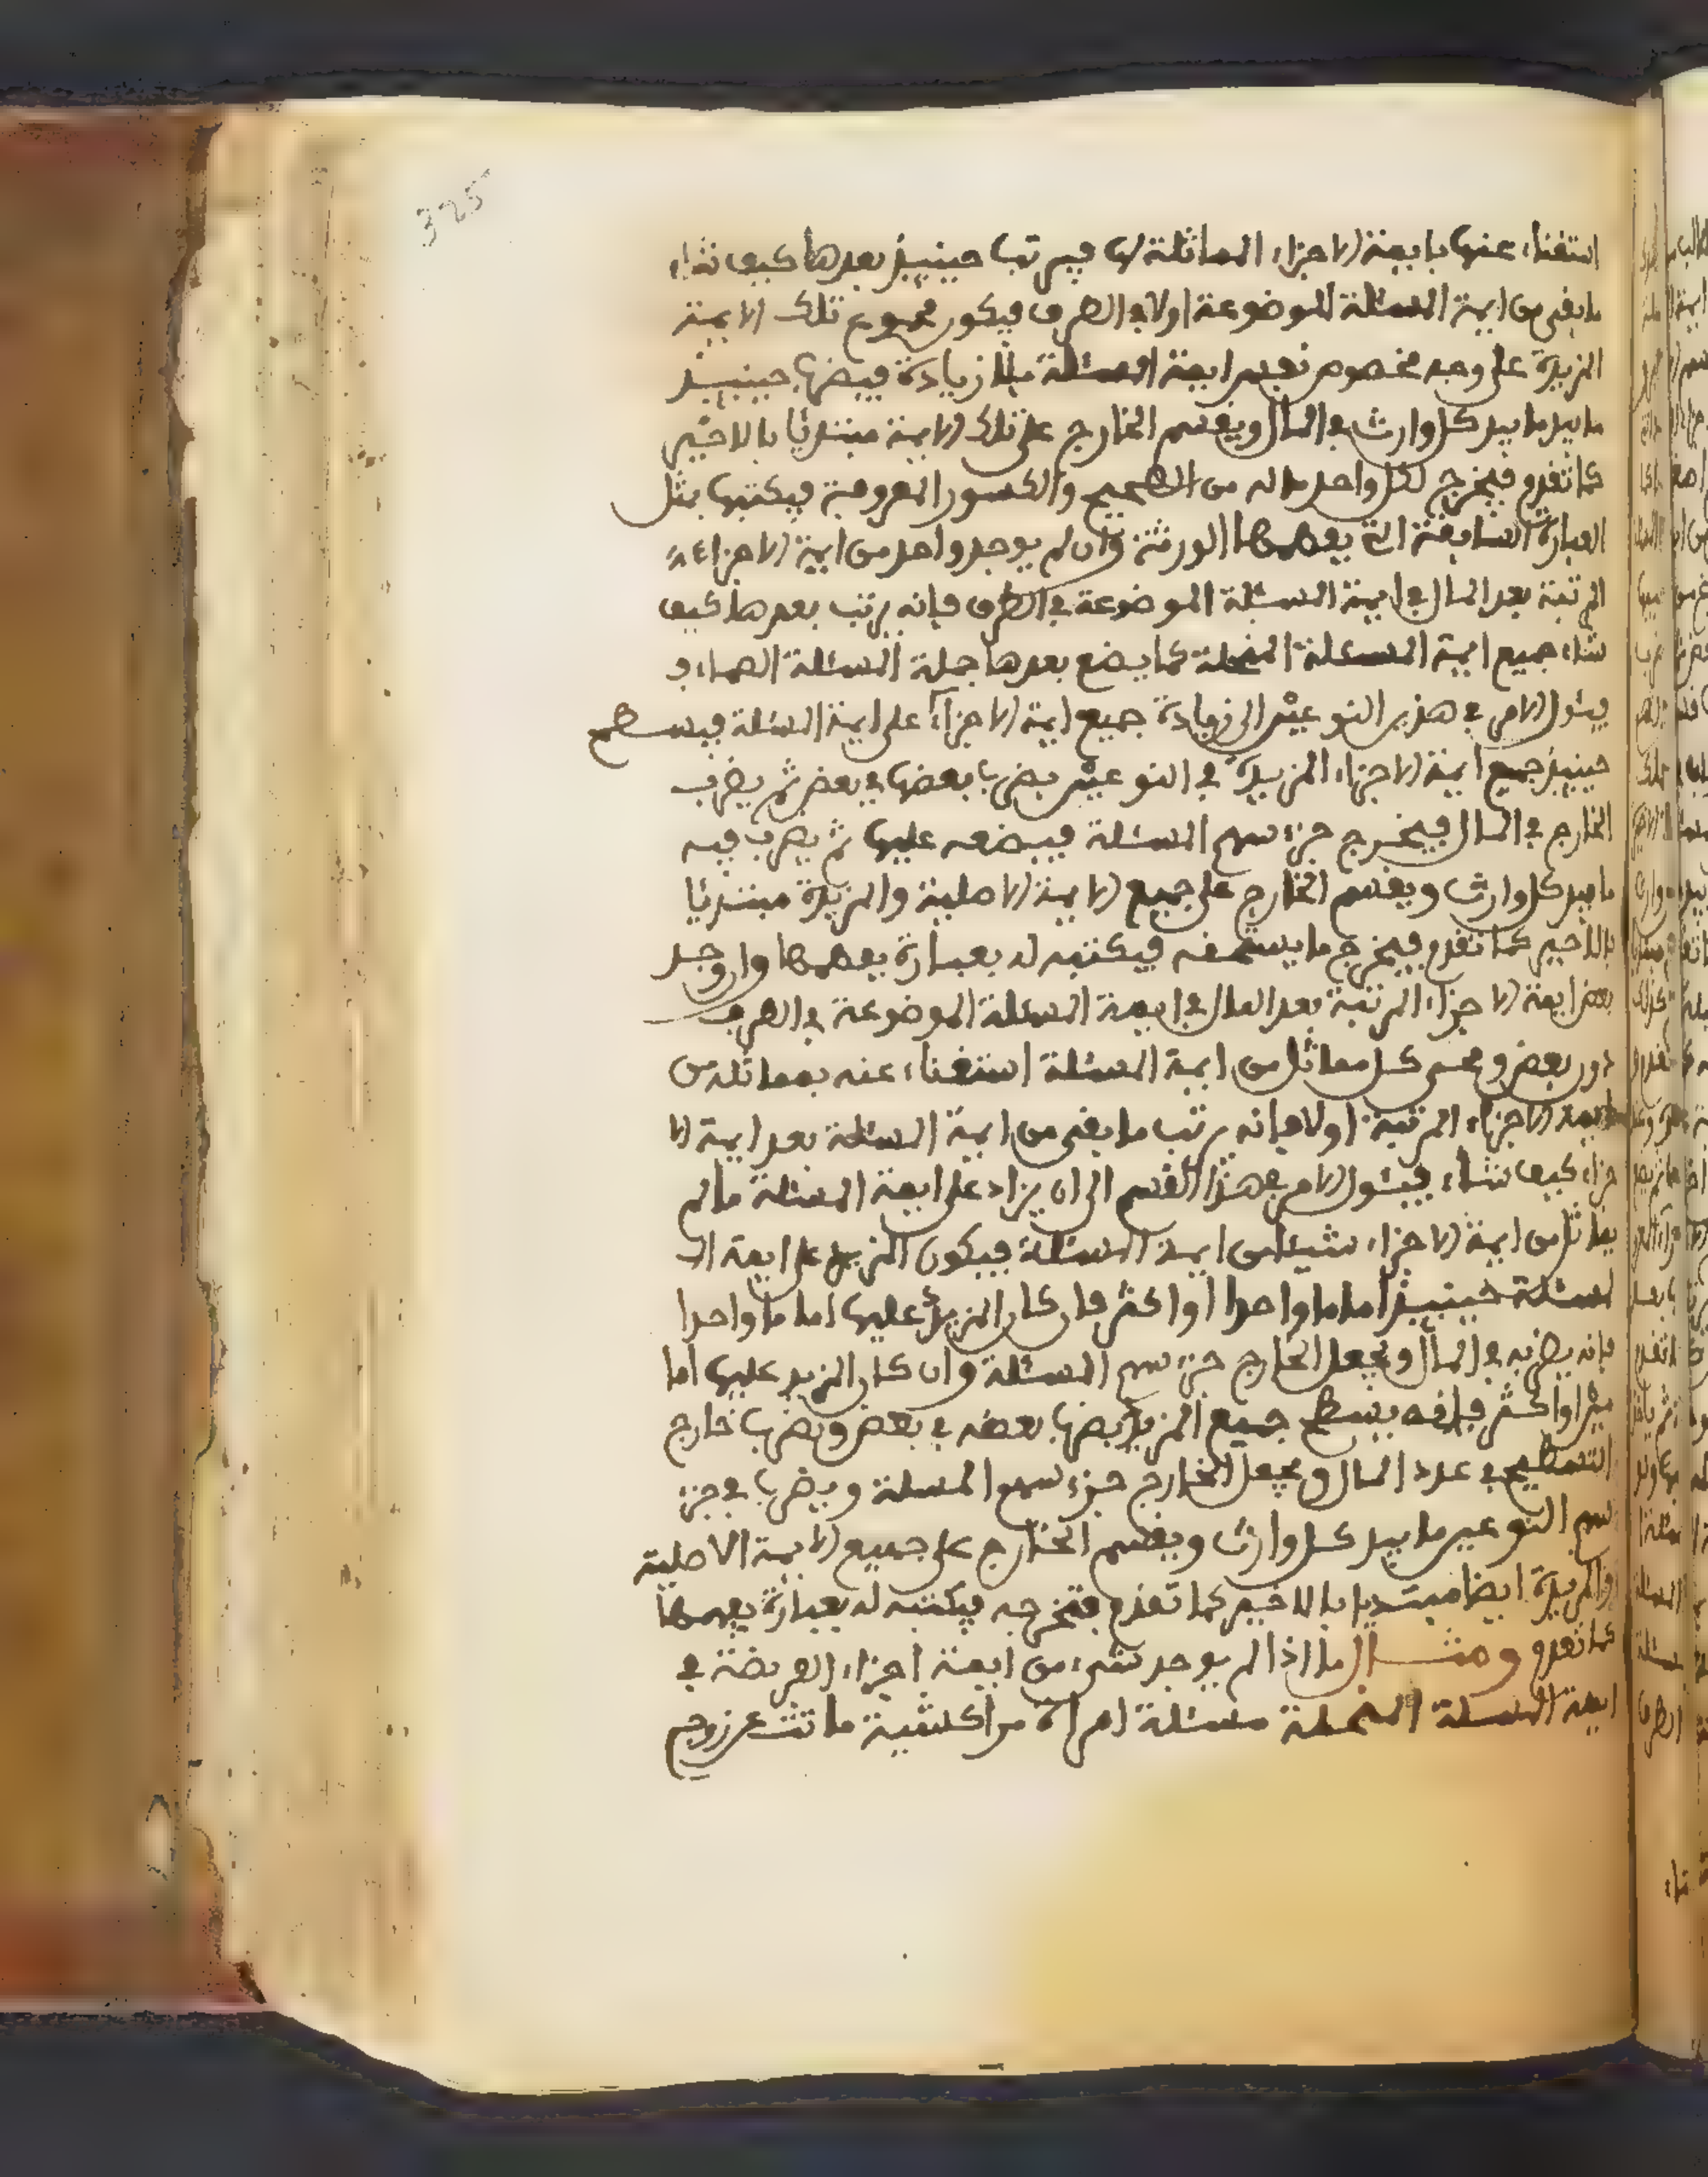 325
استغناء عنها بايمة الاجزاء المماثلة لها فيرتب حينيذ بعدها كيف شاء
ما بقي من ايمة المسئلة الموضوعة اولا في الطرف فيكون مجموع تلك الايمة
المزيدة على وجه مخصوص نفس ايمة المسئلة بلا زيادة فيضرب حينيذ
ما بيد كل وارث في المال ويقسم الخارج على تلك الايمة مبتدئا بالاخير
كما تقدم فيخرج لكل واحد ماله من الصحيح والكسور المعروفة فيكتبها بمثل
العبارة السابقة التي يفهمها الورثة وان لم يوجد واحد من ايمة الاجزاء
المرتبة بعد المال في ايمة المسئلة الموضوعة في الطرف فانه يرتب بعدها كيف
شاء جميع ايمة المسئلة المنحلة كما يضع بعدها جملة المسئلة الصماء و
فيئول الامر في هذين النوعين الى زيادة جميع ايمة الاجزاء على ايمة المسئلة فيسطح
حينيذ جميع ايمة الاجزاء المزيدة في النوعين بضرب بعضها في بعض ثم يضرب
الخارج في المال فيخرج جزء سهم المسئلة فيضعه عليها ثم يضرب فيه
ما بيد كل وارث ويقسم الخارج على جميع الايمة الاصلية والمزيدة مبتدئا
بالاخير كما تقدم فيخرج ما يستحقه فيكتبه له بعبارة يفهمها وان وجد
بعض ايمة الاجزاء المرتبة بعد المال في ايمة المسئلة الموضوعة في الطرف
دون بعض ومحي كل مماثل من ايمة المسئلة استغناء عنه بمماثله من
ايمة الاجزاء المرتبة اولا فانه يرتب ما بقي من ايمة المسئلة بعد ايمة الا
جزاء كيف شاء فيئول الامر في هذا القسم الى ان يزاد على ايمة المسئلة ما لم
يماثل من ايمة الاجزاء شيئا من ايمة المسئلة فيكون المزيد على ايمة ال
مسئلة حينيذ اماما واحدا او اكثر فان كان المزيد عليها اماما واحدا
فانه يضربه في المال ويجعل الخارج جزء سهم المسئلة وان كان المزيد عليها اما
مين او اكثر فانه يسطح جميع المزيد بضرب بعضه في بعض ويضرب خارج
التسطيح في عدد المال ويجعل الخارج جزء سهم المسئلة ويضرب في جزء
سهم النوعين ما بيد كل وارث ويقسم الخارج على جميع الايمة الاصلية
والمزيدة ايضا مبتديا بالاخير كما تقدم فتخرجه فيكتبه له بعبارة يفهمها
كما تقدم ومثال ما اذا لم يوجد شيء من ايمة اجزاء الفريضة في
ايمة المسئلة المنحلة مسئلة امراة مراكشية ماتت عن زوج